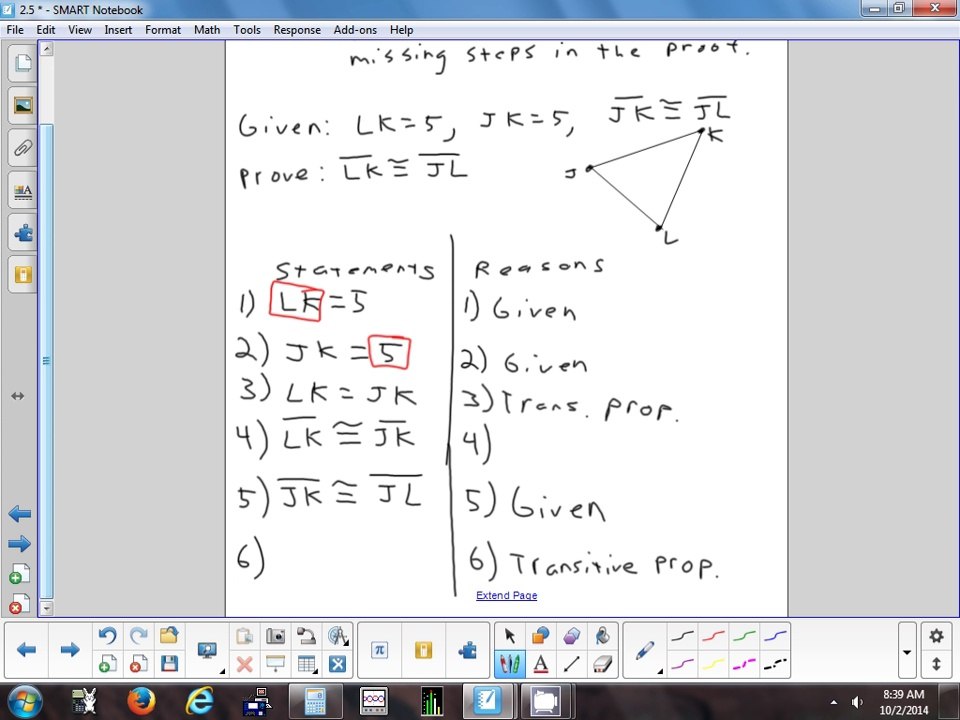 2.5 * - SMART Notebook
File Edit View Insert Format Math Tools Response Add-ons Help
missing steps in the proof.
Given: LK = 5, JK = 5, J̅K̅ ≅ J̅L̅
prove: L̅K̅ ≅ J̅L̅
K
J
L
Statements Reasons
1) LK = 5 1) Given
2) JK = 5 2) Given
3) LK = JK 3) Trans. prop.
4) L̅K̅ ≅ J̅K̅ 4)
5) J̅K̅ ≅ J̅L̅ 5) Given
6) 6) Transitive prop.
Extend Page
8:39 AM
10/2/2014